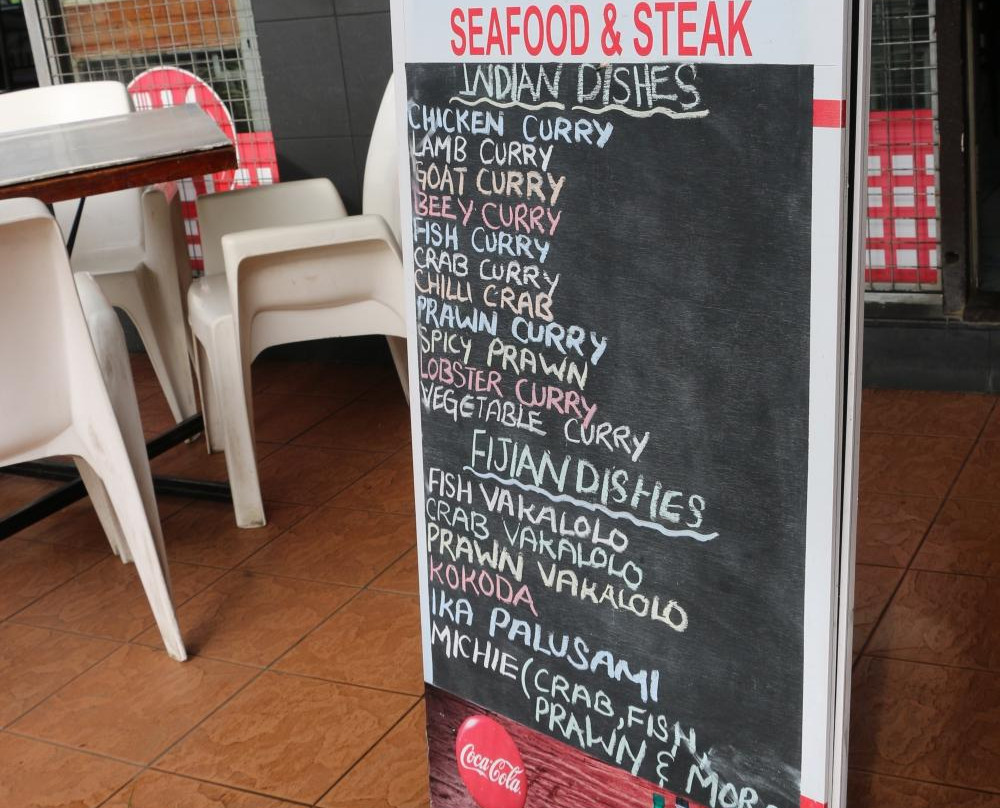 SEAFOOD & STEAK
INDIAN DISHES
CHICKEN CURRY
LAMB CURRY
GOAT CURRY
BEEY CURRY
FISH CURRY
CRAB CURRY
CHILLI CRAB
PRAWN CURRY
SPICY PRAWN
LOBSTER CURRY
VEGETABLE CURRY
FIJIAN DISHES
FISH VAKALOLO
CRAB VAKALOLO
PRAWN VAKALOLO
KOKODA
IKA PALUSAMI
MICHIE (CRAB, FISH,
PRAWN & MOR
Coca-Cola